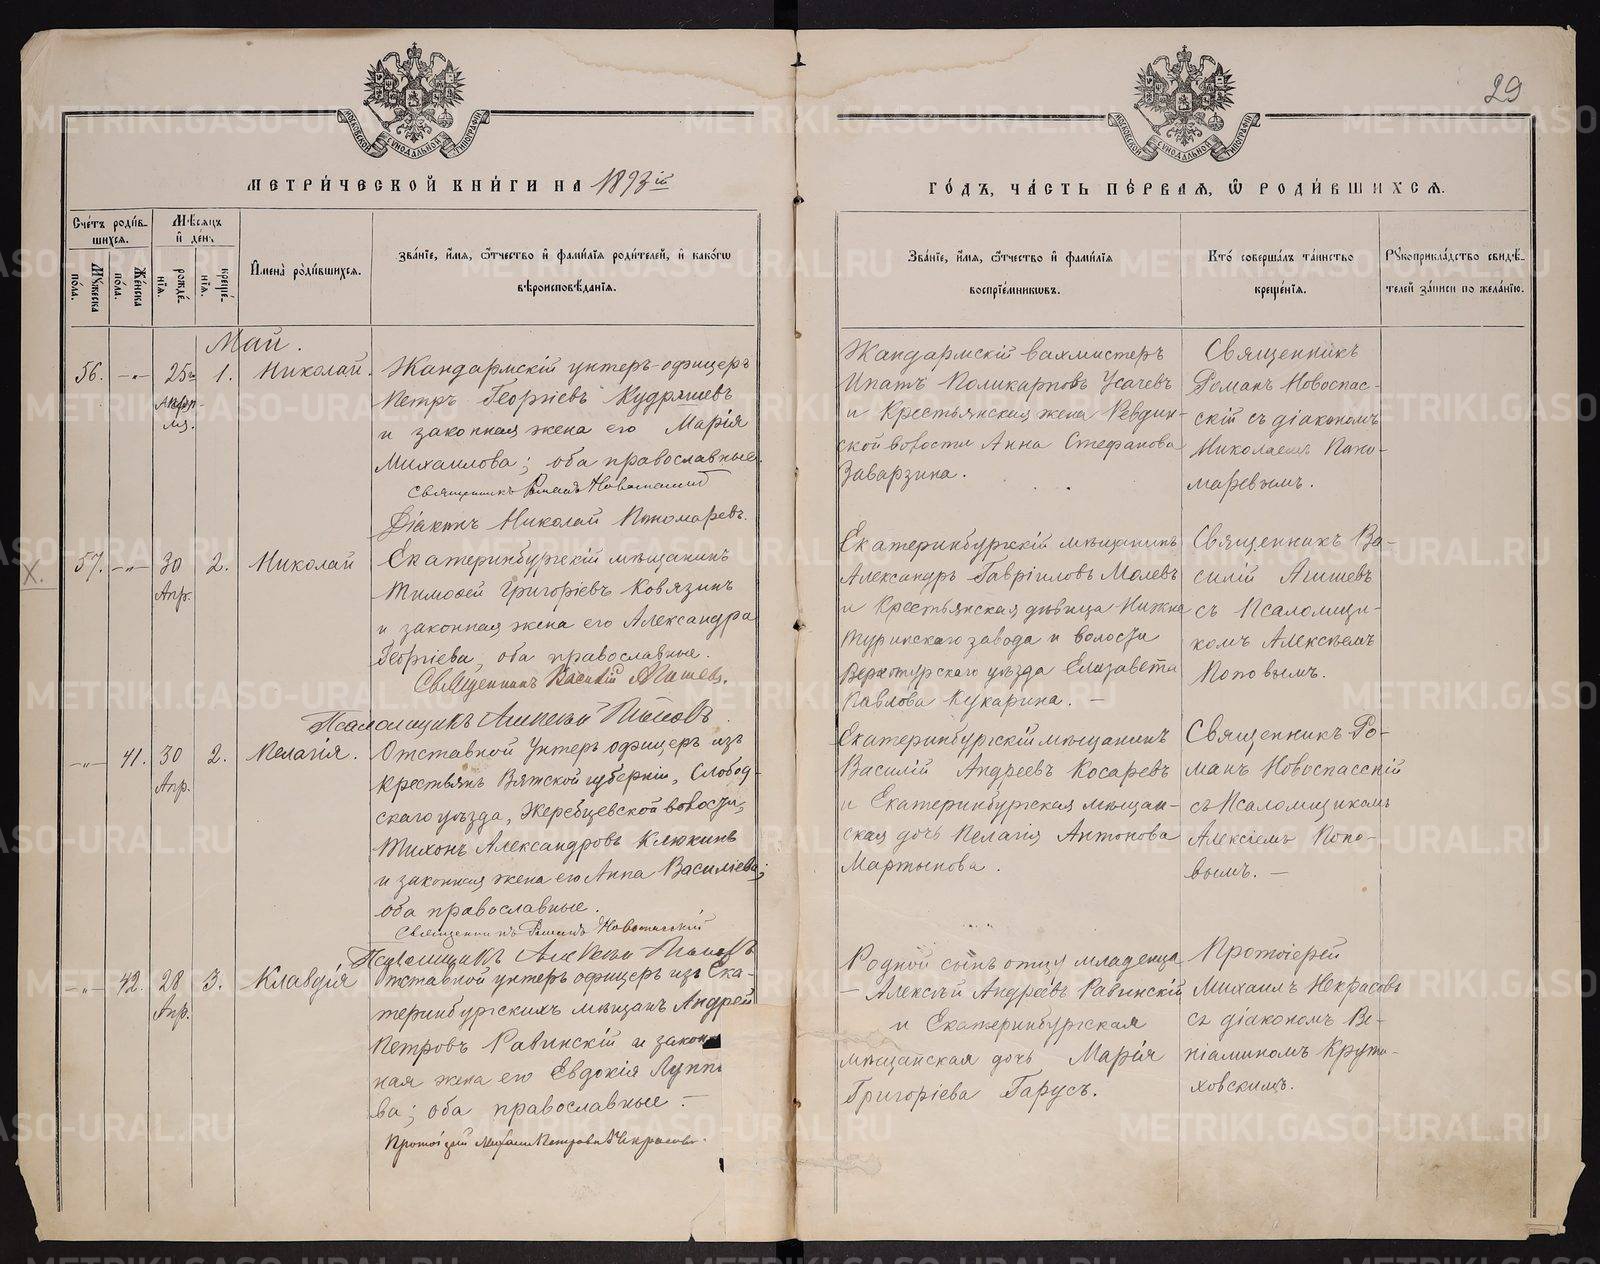 29
МОСКОВСКОЙ СѴНОДАЛЬНОЙ ТИПОГРАФІИ
МОСКОВСКОЙ СѴНОДАЛЬНОЙ ТИПОГРАФІИ
МЕТРИ́ЧЕСКОЙ КНИ́ГИ НА 1893й
ГО́ДЪ, ЧА́СТЬ ПЕ́РВАЯ, Ѿ РОДИ́ВШИХСЯ.
Сче́тъ роди́в-
шихся.
Му́жеска по́ла.
Же́нска по́ла.
Мѣ́сяцъ
и҆ де́нь
рожде́-
нїя.
креще́-
нїя.
И҆мена̀ роди́вшихся.
Зва́нїе, и҆́мя, ѻ҆́тчество и҆ фами́лїя роди́телей, и҆ како́гѡ
вѣроисповѣ́данїя.
Зва́нїе, и҆́мя, ѻ҆́тчество и҆ фами́лїя
воспрїе́мникѡвъ.
Кто́ соверша́лъ та́инство
креще́нїя.
Рꙋкоприкла́дство свидѣ́-
телей за́писи по жела́нїю.
Май.
56. -„- 25го Апрѣ-ля. 1. Николай.
Жандармскій унтеръ-офицеръ
Петръ Георгіевъ Кудряшевъ
и законная жена его Марія
Михаилова; оба православные.
Священникъ Романъ Новоспасскій
Діаконъ Николай Пономаревъ.
Жандармскій вахмистеръ
Ипатъ Поликарповъ Усачевъ
и Крестьянская жена Ревдин-
ской волости Анна Стефанова
Заварзина.
Священникъ
Романъ Новоспас-
скій съ діакономъ
Николаемъ Поно-
маревымъ.
X.
57. -„- 30 Апр. 2. Николай
Екатеринбургскій мѣщанинъ
Тимоѳей Григоріевъ Ковязинъ
и законная жена его Александра
Георгіева, оба православные.
Священникъ Василій Агишевъ.
Псаломщикъ Алексѣй Поповъ.
Екатеринбургскій мѣщанинъ
Александръ Гавріиловъ Молевъ
и Крестьянская дѣвица Нижне
Туринскаго завода и волости
Верхотурскаго уѣзда Елизавета
Павлова Кукарина. —
Священникъ Ва-
силій Агишевъ
съ Псаломщи-
комъ Алексѣемъ
Поповымъ.
-„- 41. 30 Апр. 2. Пелагія.
Отставной Унтеръ офицеръ изъ
крестьянъ Вятской губерніи, Слобод-
скаго уѣзда, Жеребцевской волости,
Тихонъ Александровъ Клюкинъ
и законная жена его Анна Василіева;
оба православные.
Священникъ Романъ Новоспасскій
Псаломщикъ Алексѣй Поповъ
Екатеринбургскій мѣщанинъ
Василій Андреевъ Косаревъ
и Екатеринбургская мѣщан-
ская дочь Пелагія Антонова
Мартынова.
Священникъ Ро-
манъ Новоспасскій
съ Псаломщикомъ
Алексіемъ Попо-
вымъ. —
-„- 42. 28 Апр. 3. Клавдія
Отставной унтеръ офицеръ изъ Ека-
теринбургскихъ мѣщанъ Андрей
Петровъ Равинскій и закон
ная жена его Евдокія Луппо
ва; оба православные. —
Протоіерей Михаилъ Петровъ Некрасовъ.
Родной сынъ отца младенца
— Алексѣй Андреевъ Равинскій
и Екатеринбургская
мѣщанская дочь Марія
Григоріева Гарусъ.
Протоіерей
Михаилъ Некрасовъ
съ діакономъ Ве-
ніаминомъ Круто-
ховскимъ.
METRIKI.GASO-URAL.RU